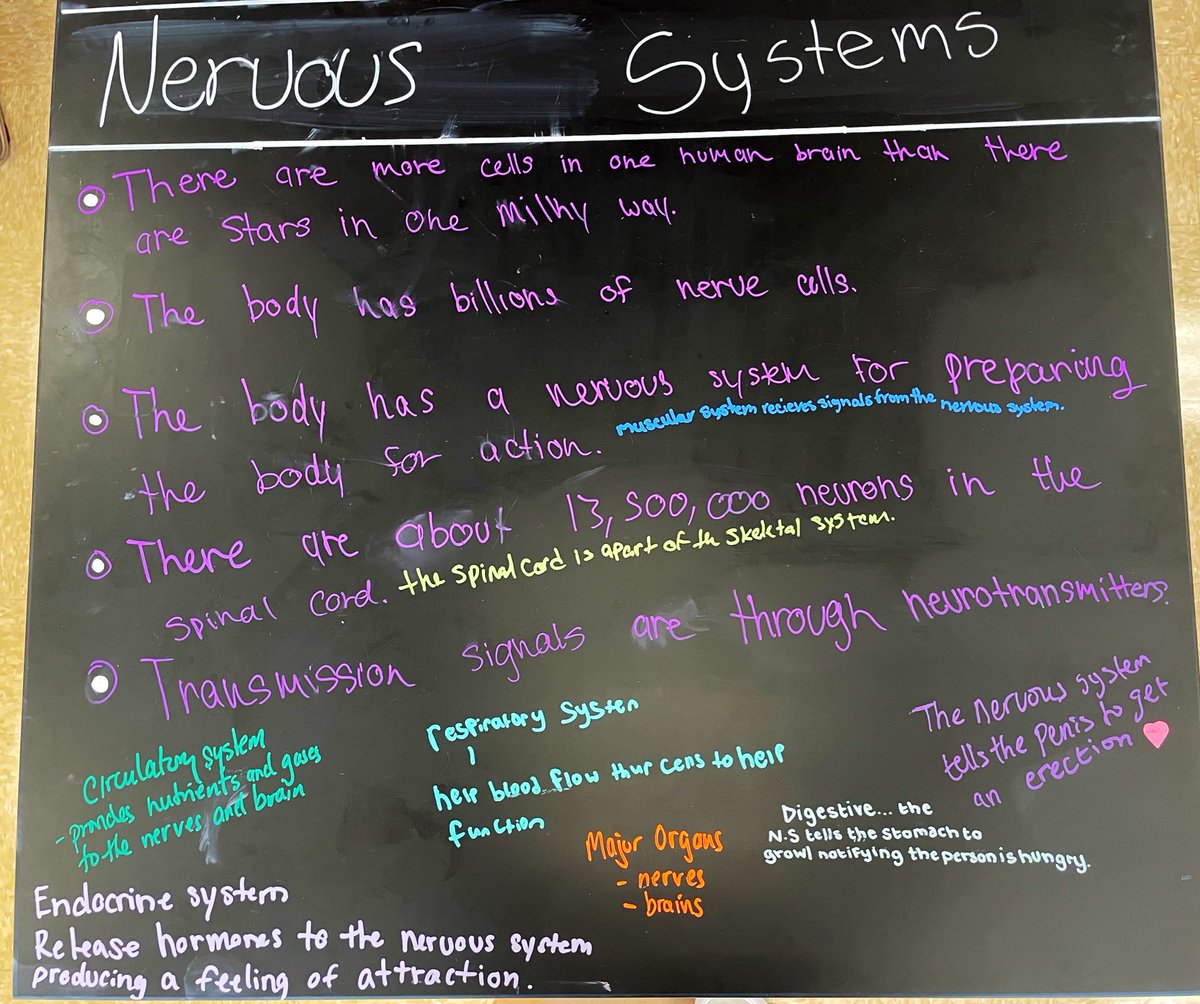 Nervous Systems
There are more cells in one human brain than there
are stars in one milky way.
The body has billions of nerve cells.
The body has a nervous system for preparing
the body for action.
muscular system recieves signals from the nervous system.
There are about 13,500,000 neurons in the
spinal cord.
the spinal cord is apart of th skeletal system.
Transmission signals are through neurotransmitters.
Circulatory system
- provides nutrients and gases
to the nerves and brain
respiratory system
help blood flow thur cells to help
function
The nervous system
tells the penis to get
an erection
Digestive... the
N.S tells the stomach to
growl notifying the person is hungry.
Major Organs
- nerves
- brains
Endocrine system
Release hormones to the nervous system
producing a feeling of attraction.